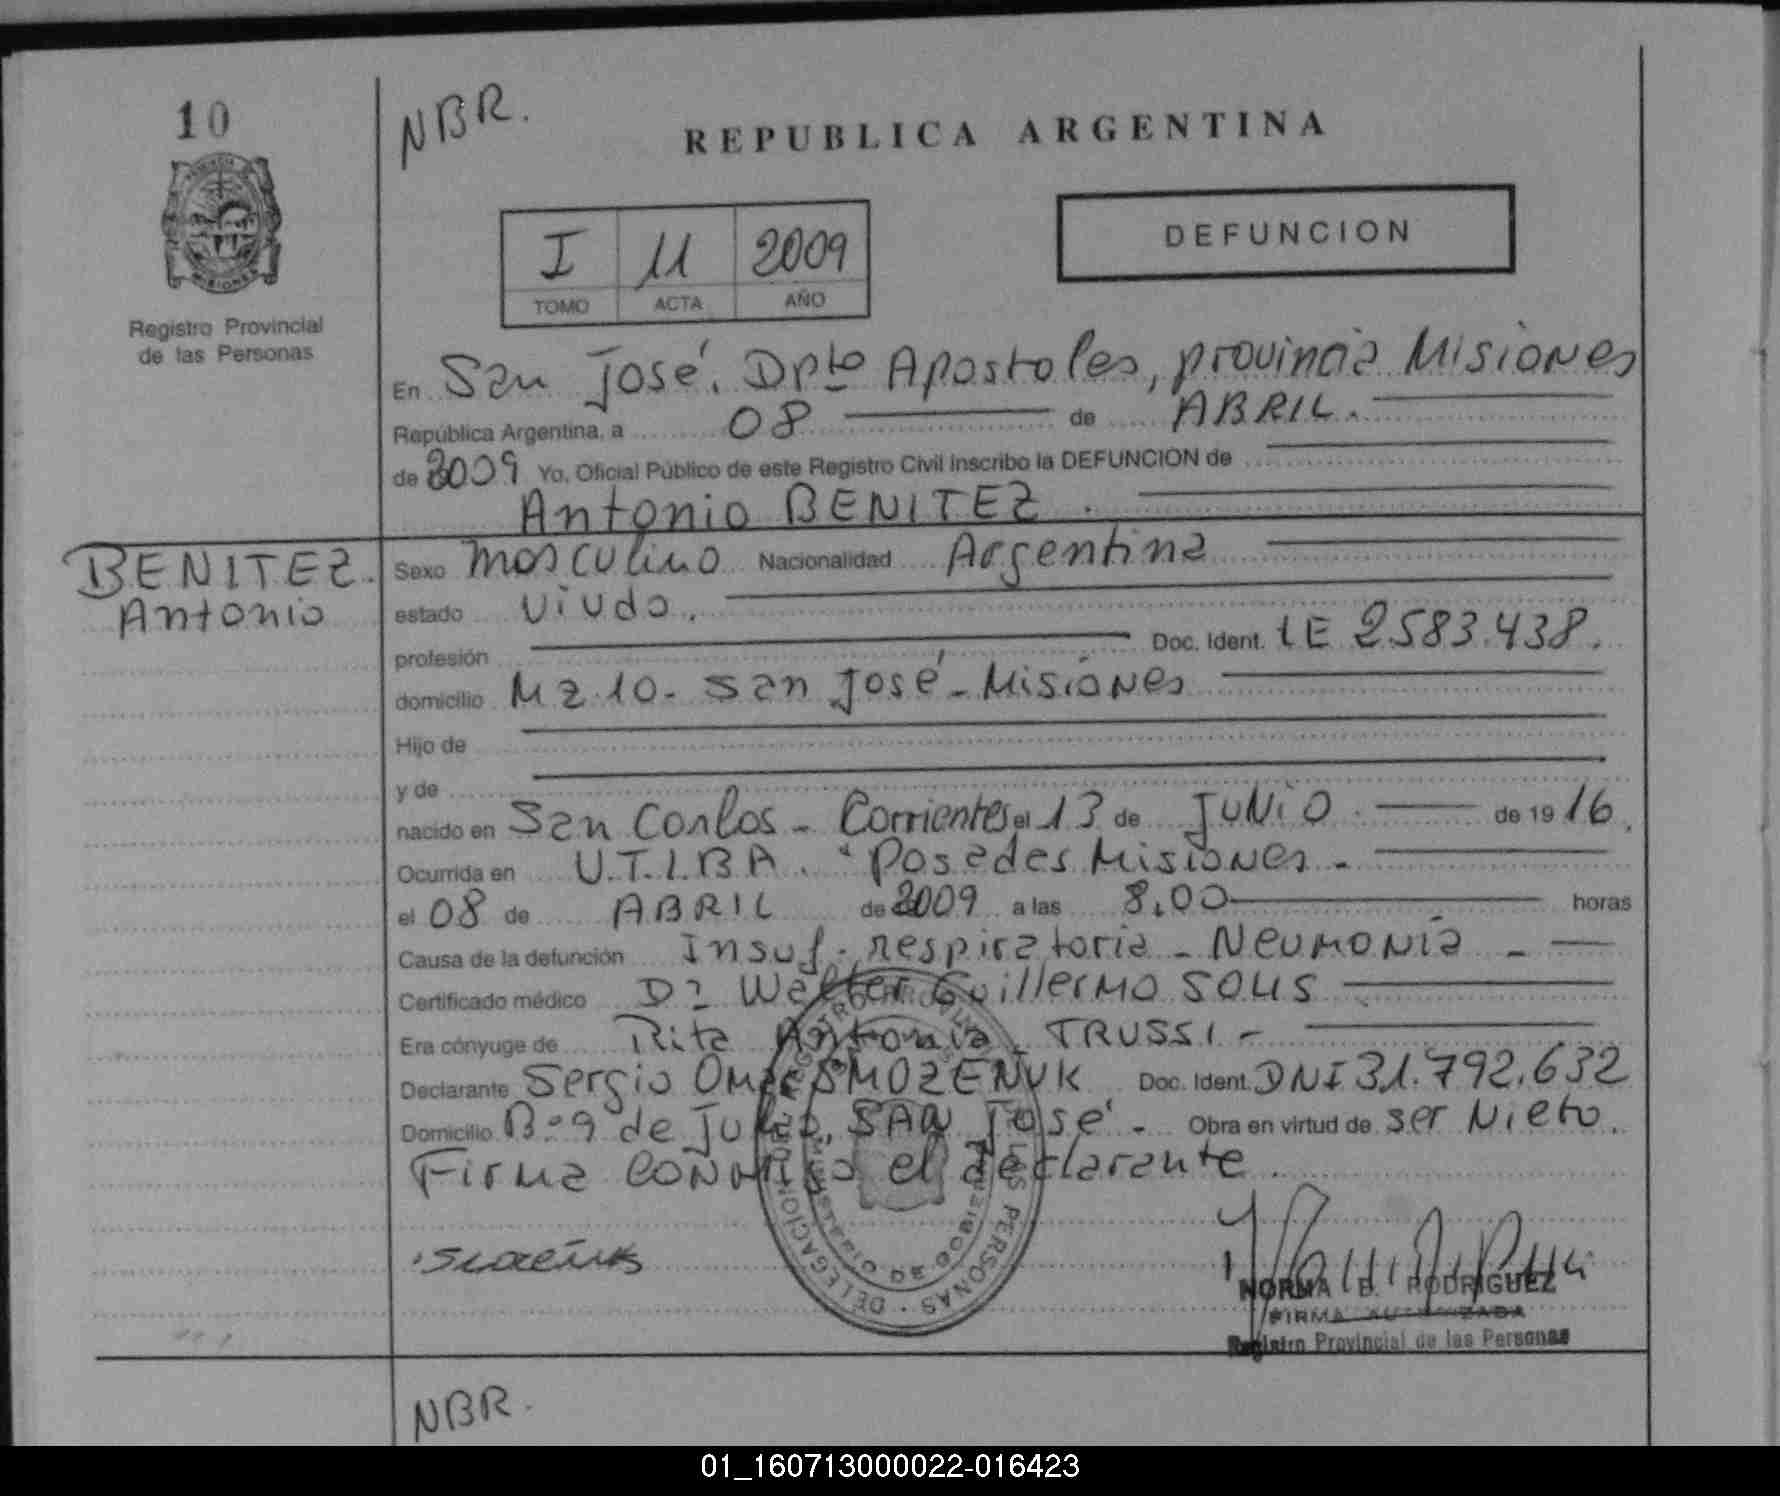 10
NBR.
REPUBLICA ARGENTINA
I 11 2009
TOMO ACTA AÑO
DEFUNCION
Registro Provincial
de las Personas
En San José. Dpto Apostoles, provincia Misiones
República Argentina, a 08 de ABRIL.
de 2009 Yo, Oficial Público de este Registro Civil inscribo la DEFUNCION de
Antonio BENITEZ.
BENITEZ.
Antonio
Sexo masculino Nacionalidad Argentina
estado viudo.
profesión Doc. Ident. LE 2583.438.
domicilio Mz 10. San José - Misiones
Hijo de
y de
nacido en San Carlos - Corrientes el 13 de JUNIO. de 19 16.
Ocurrida en U.T.I.BA. Posadas Misiones -
el 08 de ABRIL de 2009 a las 8,00 horas
Causa de la defunción Insuf. respiratoria - Neumonía -
Certificado médico Dr Walter Guillermo SOLIS
Era cónyuge de Rita Antonia TRUSSI -
Declarante Sergio Omar SMOZENUK Doc. Ident. DNI 31.792.632
Domicilio Bº 9 de Julio, SAN José. Obra en virtud de ser Nieto.
Firma conmigo el declarante.
DELEGACION PERSONAS
NORMA B. RODRIGUEZ
FIRMA AUTORIZADA
Registro Provincial de las Personas
NBR.
01_160713000022-016423